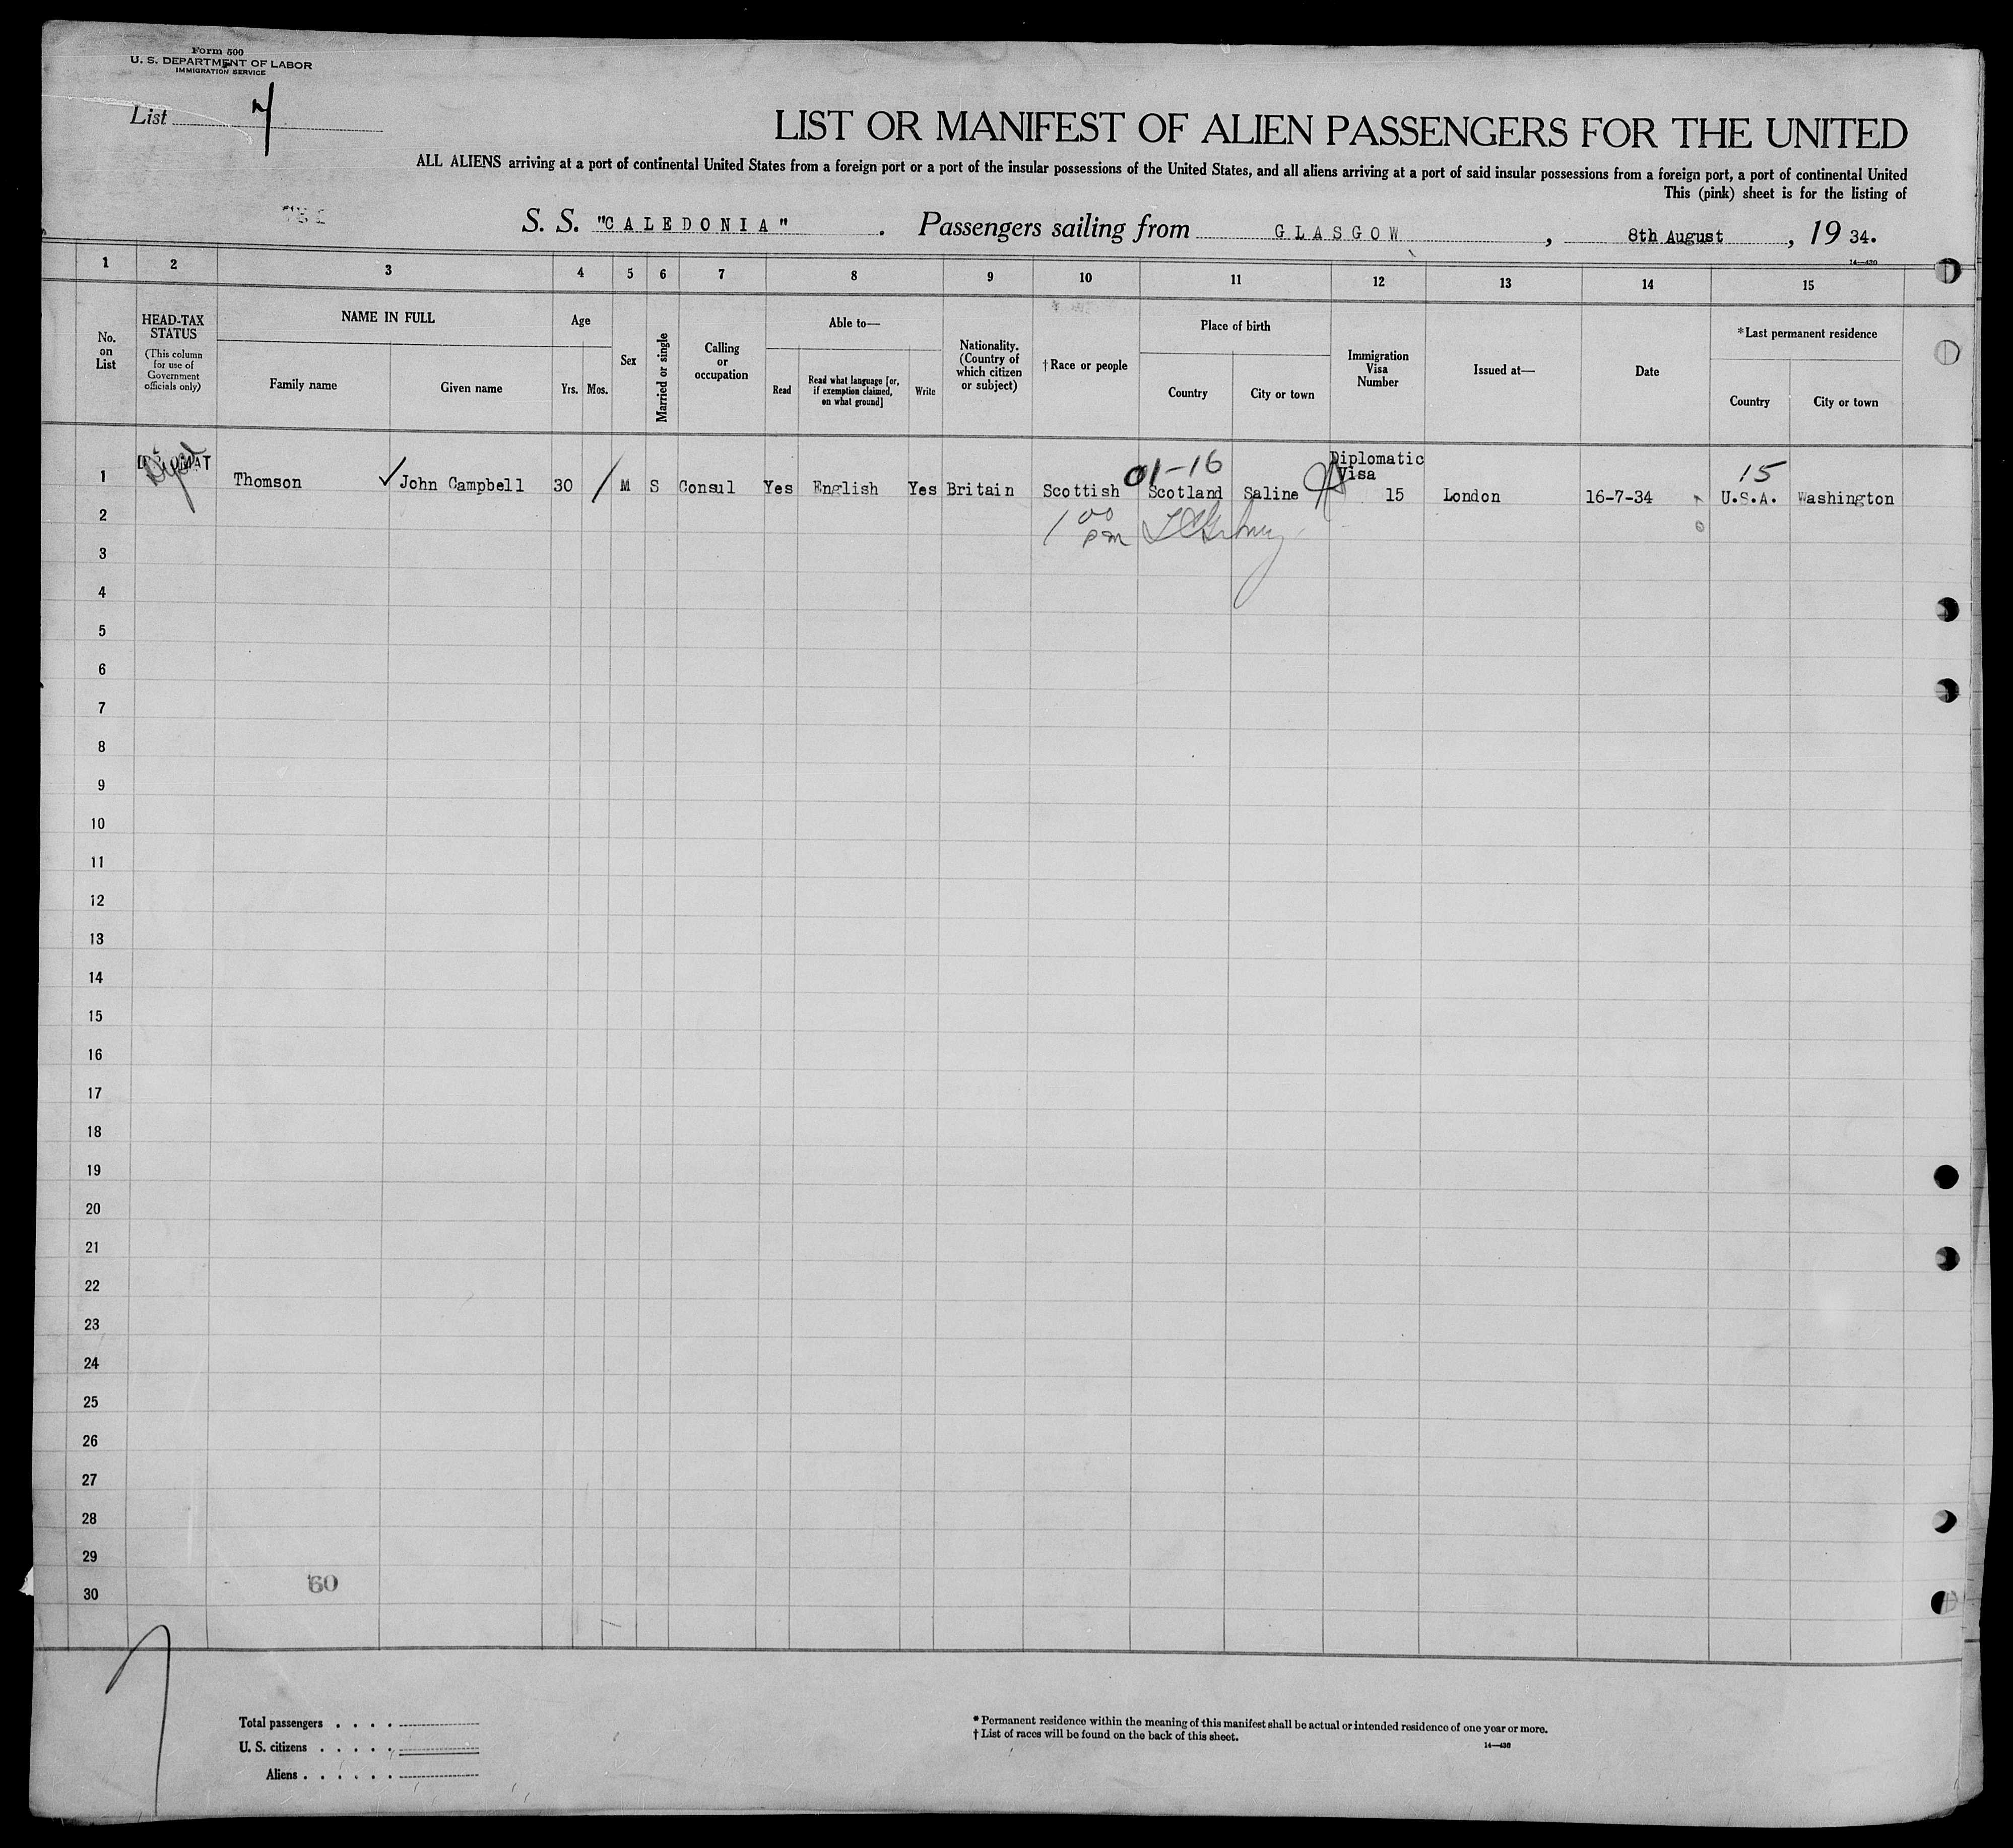 Form 500
U. S. DEPARTMENT OF LABOR
IMMIGRATION SERVICE
List 7
LIST OR MANIFEST OF ALIEN PASSENGERS FOR THE UNITED
ALL ALIENS arriving at a port of continental United States from a foreign port or a port of the insular possessions of the United States, and all aliens arriving at a port of said insular possessions from a foreign port, a port of continental United
This (pink) sheet is for the listing of
S. S. "CALEDONIA" . Passengers sailing from GLASGOW , 8th August , 19 34.
14—430
1 2 3 4 5 6 7 8 9 10 11 12 13 14 15
No. on List
HEAD-TAX STATUS
(This column for use of Government officials only)
NAME IN FULL
Family name
Given name
Age
Yrs. Mos.
Sex
Married or single
Calling or occupation
Able to—
Read
Read what language [or, if exemption claimed, on what ground]
Write
Nationality. (Country of which citizen or subject)
†Race or people
Place of birth
Country
City or town
Immigration Visa Number
Issued at—
Date
*Last permanent residence
Country
City or town
01-16
Diplomatic
Visa
15
1 Thomson John Campbell 30 M S Consul Yes English Yes Britain Scottish Scotland Saline 15 London 16-7-34 U.S.A. Washington
1 00 pm
2
3
4
5
6
7
8
9
10
11
12
13
14
15
16
17
18
19
20
21
22
23
24
25
26
27
28
29
30
60
7
Total passengers . . . .
U. S. citizens . . . . .
Aliens . . . . . .
* Permanent residence within the meaning of this manifest shall be actual or intended residence of one year or more.
† List of races will be found on the back of this sheet.
14—430